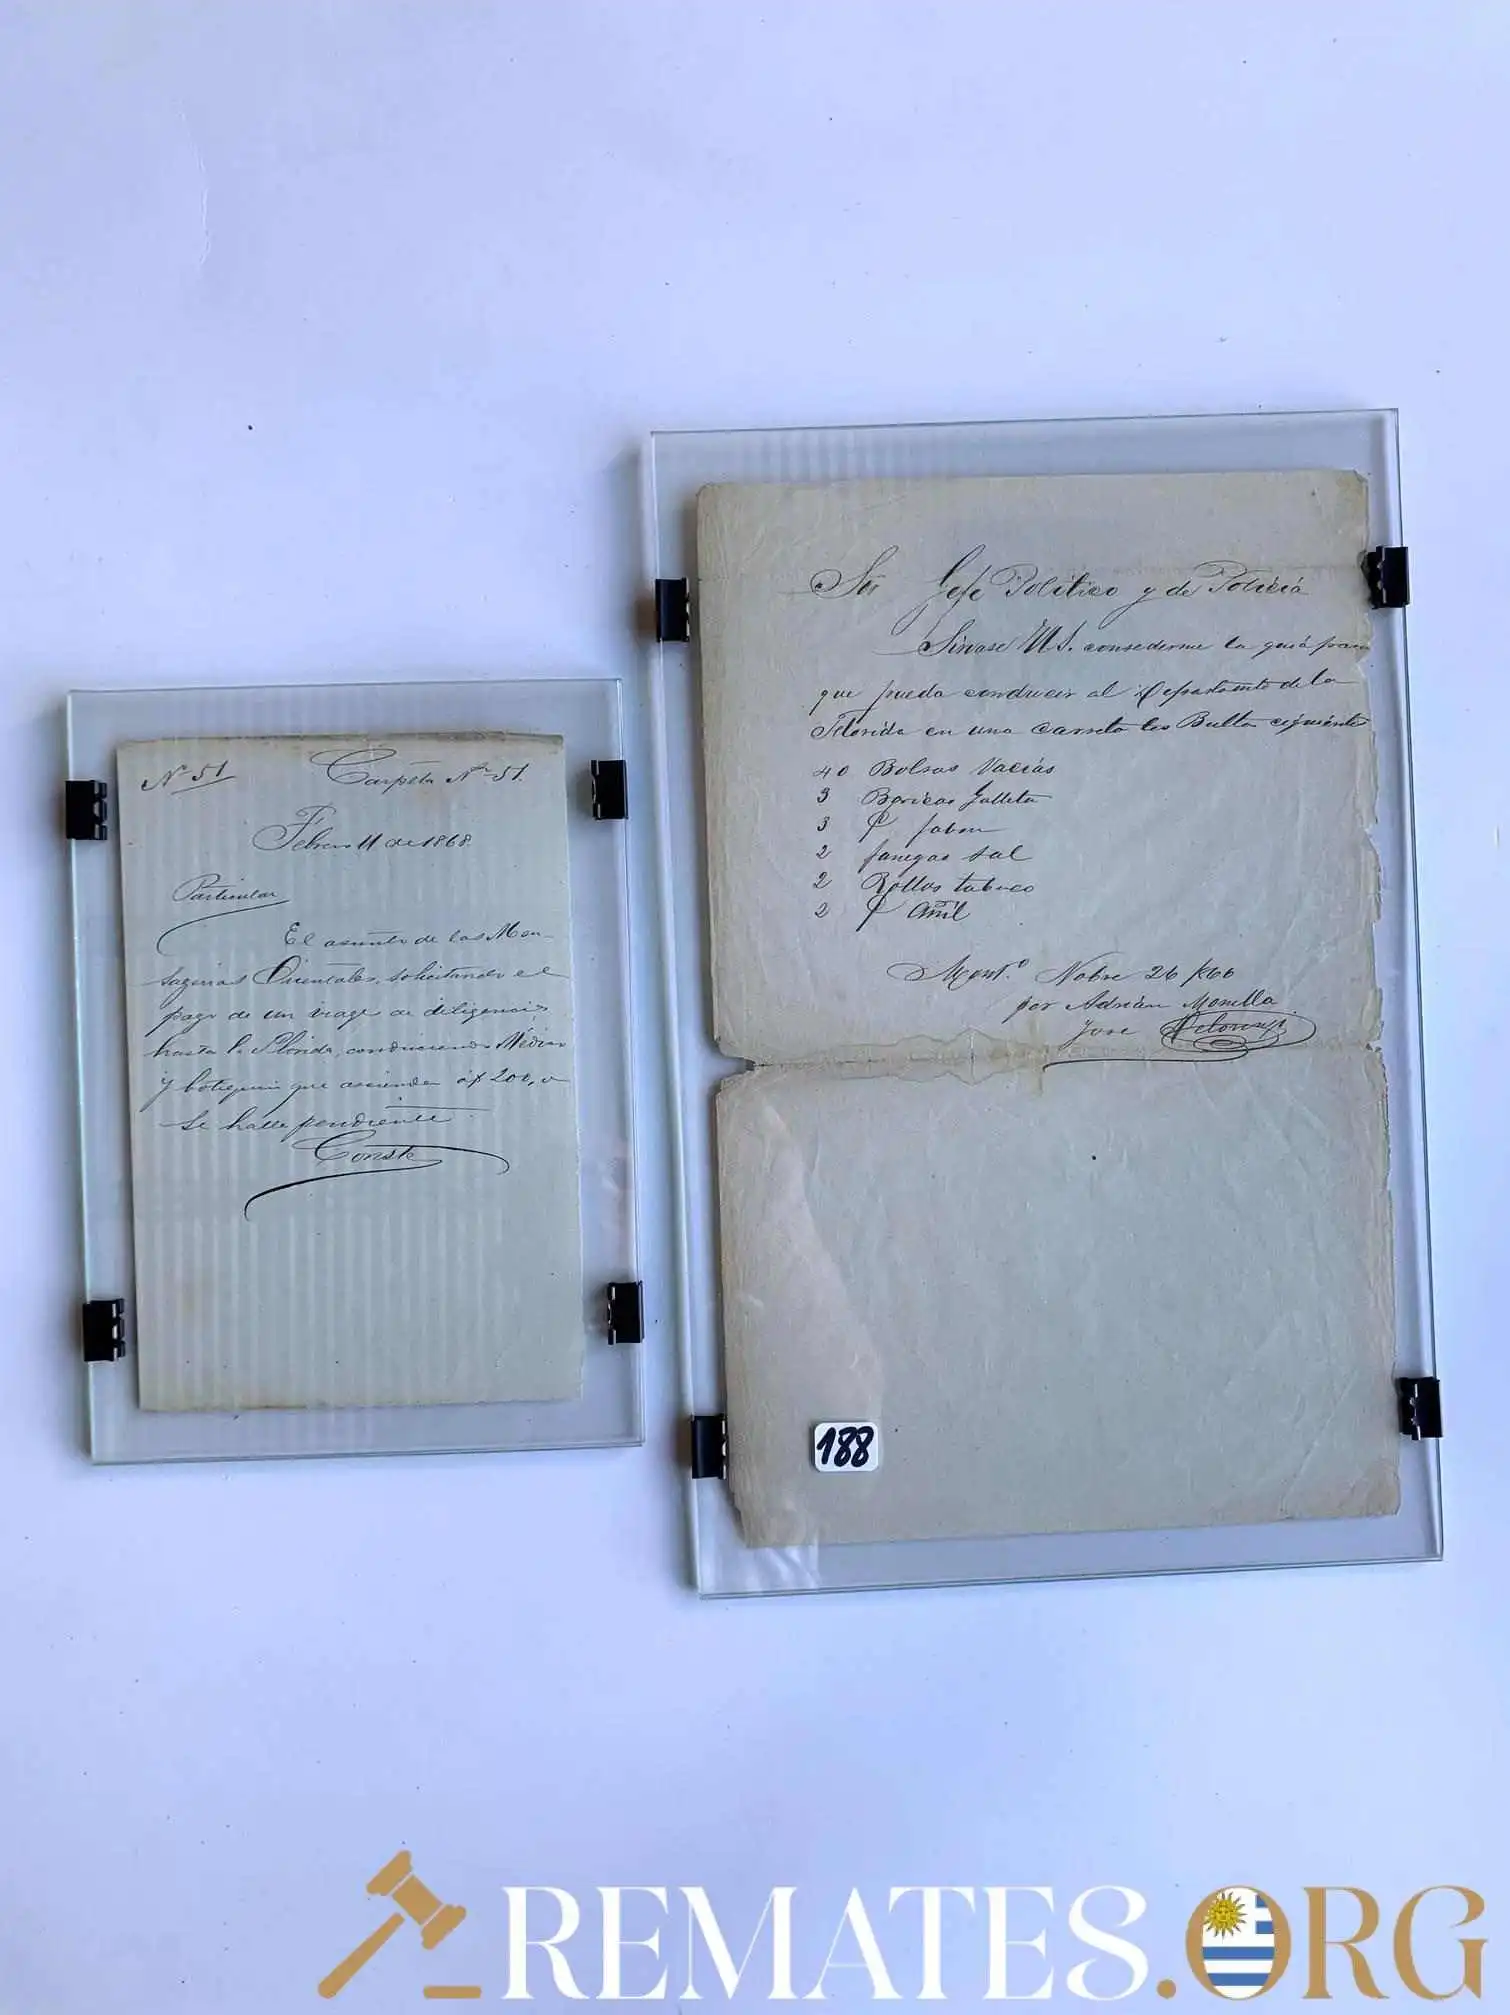 Nº 51
Carpeta Nº 51.
Febrero 11 de 1868.
Particular
El asunto de las Men-
sagerias Orientales, solicitando el
pago de un viage de diligencia
hasta la Florida, conduciendo Médico
y botiquin que asciende á $ 200, 
se halla pendiente
Conste
Sor Gefe Político y de Policia
Sirvase U.S. consederme la guia para
que pueda conducir al Departamento de la
Florida en una carreta los Bultos siguientes
40 Bolsas Vacias
3 Baricas Galleta
3 jabon
2 fanegas sal
2 Rollos tabaco
2 Añil
Montº Nobre 26 /866
por Adrián
Jose
188
REMATES.ORG